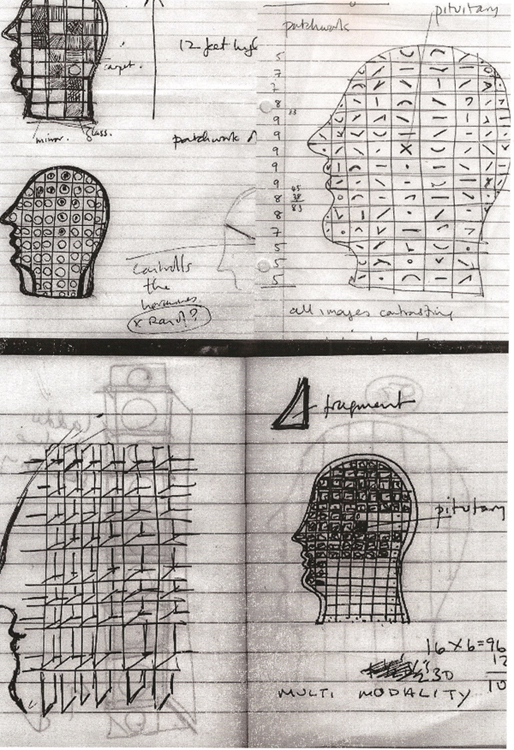 12 feet high
carpet.
mirror.
glass.
patchwork
Controlls
the
hormones.
X Rand?
patchwork
pituitary
5
7
7
8
9
9
9
9
9
8
8
7
5
5
5
all images contrasting
fragment
pitutary
16 X 6 = 96
12
10
230
MULTI MODALITY